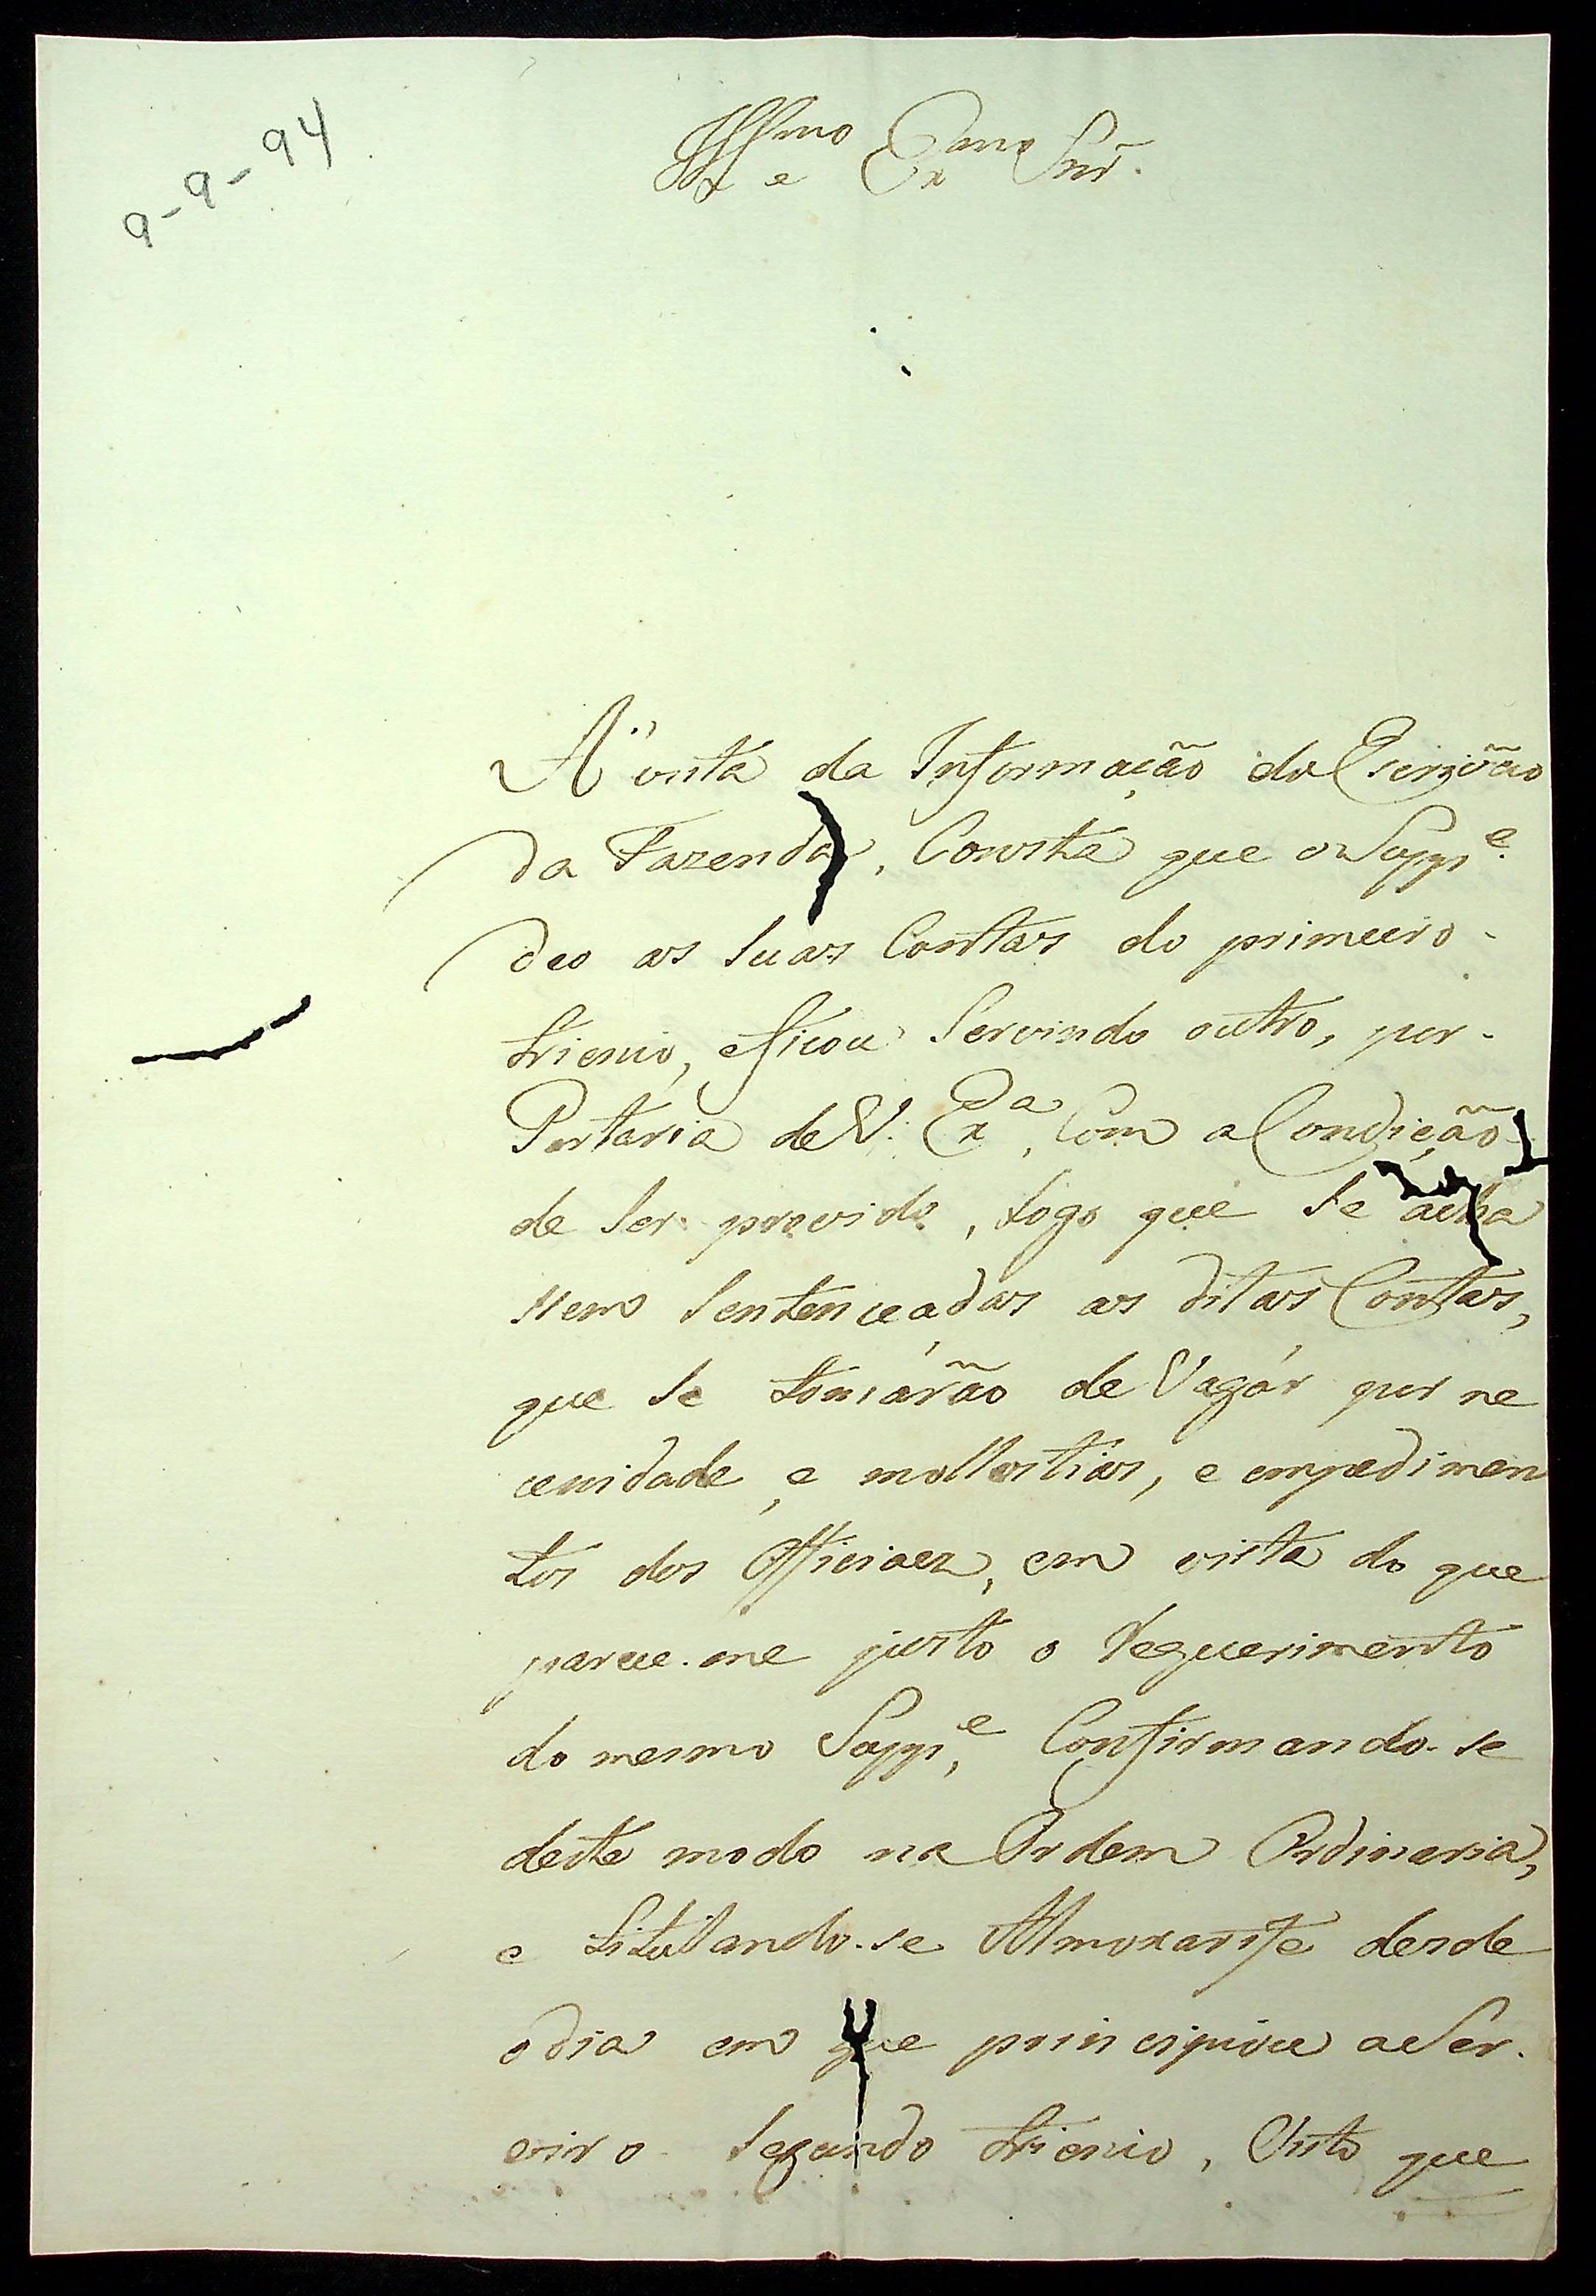 9-9-94
Illmo e Exmo Snr.
A' vista da Informação do Escrivão
da Fazenda, Consta que o Suppe.
deo as suas Contas do primeiro
trienio, e ficou Servindo outro, por
Portaria de V. Exa, Com a Condição
de Ser provido, logo que se acha
ssem Sentenceadas as ditas Contas,
que se tomárão de Vagár por ne
cessidade, e mollestias, e empedimen
tos dos Officiaez, em vista do que
parece-me justo o Requerimento
do mesmo Suppe, Confirmando-se
deste modo na Ordem Ordinaria,
e titulando-se Almoxarife desde
o dia em que principiou a Ser-
vir o Segundo trienio, Visto que